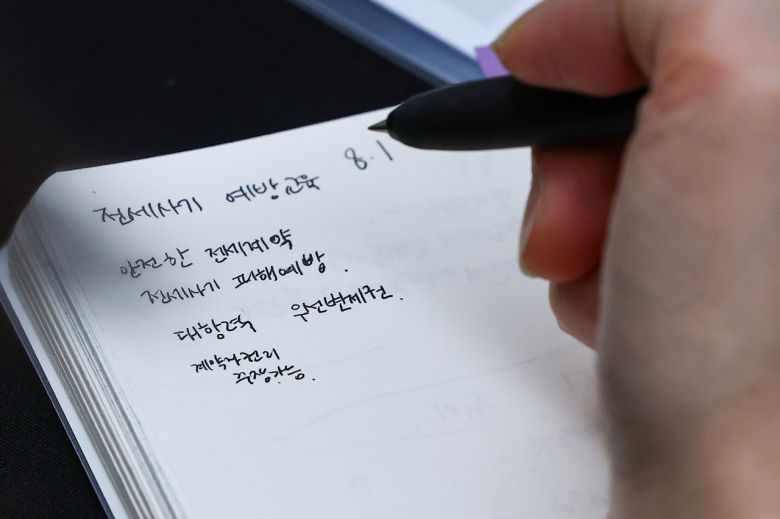 전세사기 예방교육 8.1
안전한 전세계약
전세사기 피해예방.
대항력 우선변제권.
계약자권리
주장가능.